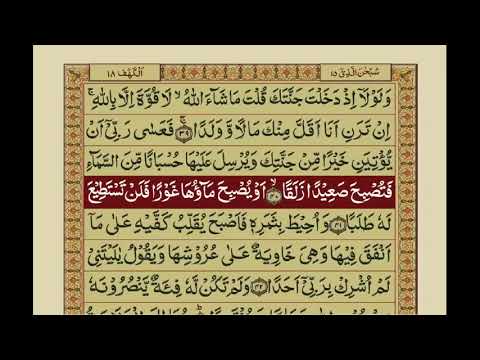 سُبْحٰنَ الَّذِیْۤ ١٥
اَلْكَهْف ١٨
وَلَوْلَاۤ اِذْ دَخَلْتَ جَنَّتَكَ قُلْتَ مَا شَآءَ اللّٰهُ ۙ لَا قُوَّةَ اِلَّا بِاللّٰهِ ۚ
اِنْ تَرَنِ اَنَا اَقَلَّ مِنْكَ مَالًا وَّ وَلَدًا ۚ﴿٣٩﴾ فَعَسٰی رَبِّیْۤ اَنْ
یُّؤْتِیَنِ خَیْرًا مِّنْ جَنَّتِكَ وَیُرْسِلَ عَلَیْهَا حُسْبَانًا مِّنَ السَّمَآءِ
فَتُصْبِحَ صَعِیْدًا زَلَقًا ۙ﴿٤٠﴾ اَوْ یُصْبِحَ مَآؤُهَا غَوْرًا فَلَنْ تَسْتَطِیْعَ
لَهٗ طَلَبًا ﴿٤١﴾ وَاُحِیْطَ بِثَمَرِهٖ فَاَصْبَحَ یُقَلِّبُ كَفَّیْهِ عَلٰی مَاۤ
اَنْفَقَ فِیْهَا وَهِیَ خَاوِیَةٌ عَلٰی عُرُوْشِهَا وَیَقُوْلُ یٰلَیْتَنِیْ
لَمْ اُشْرِكْ بِرَبِّیْۤ اَحَدًا ﴿٤٢﴾ وَلَمْ تَكُنْ لَّهٗ فِئَةٌ یَّنْصُرُوْنَهٗ